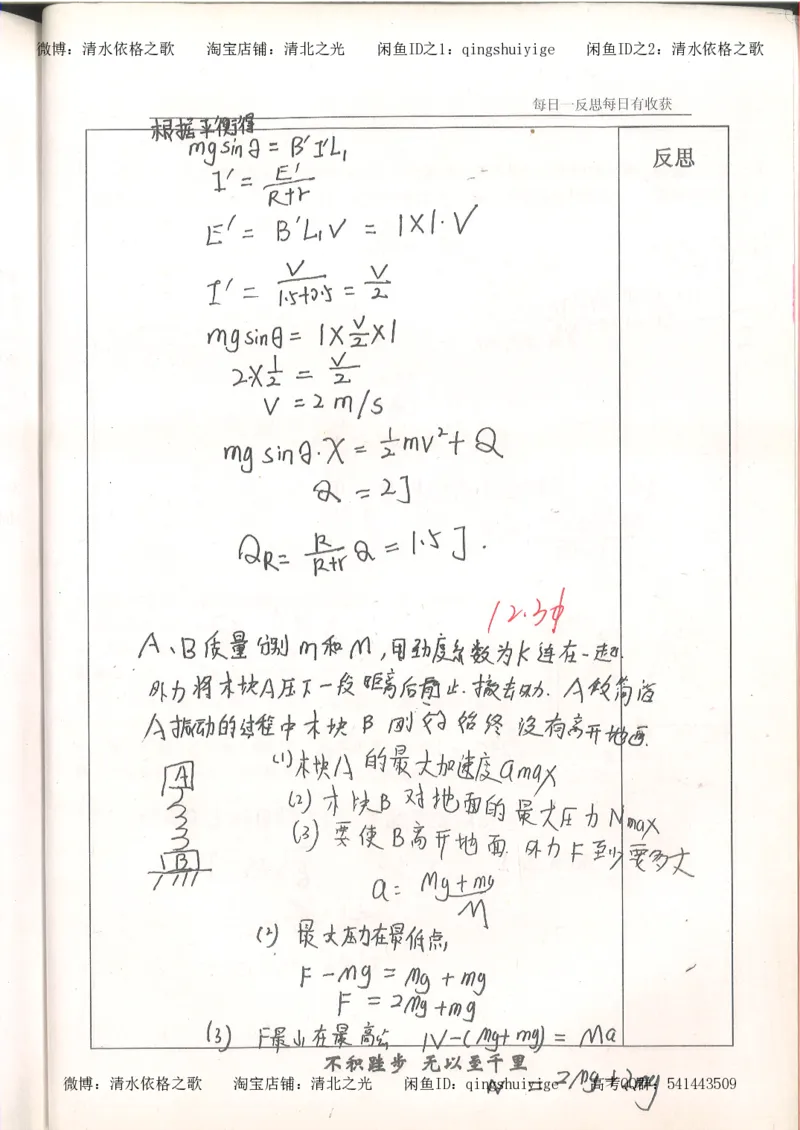 微博：清水依格之歌 淘宝店铺：清北之光 闲鱼ID之1：qingshuiyige 闲鱼ID之2：清水依格之歌
每日一反思每日有收获
反思
根据平衡得
mg sinθ = B′I′L₁
I′ = E′/(R+r)
E′ = B′L₁V = 1×1·V
I′ = V/(1.5+0.5) = V/2
mg sinθ = 1×V/2×1
2×1/2 = V/2
V = 2m/s
mg sinθ·X = 1/2 mv² + Q
Q = 2J
Q_R = R/(R+r) Q = 1.5J.
12.3
A、B质量分别m和M，用劲度系数为K连在一起.
外力将木块A压下一段距离后静止.撤去外力. A做简谐
A振动的过程中木块B 刚好始终没有离开地面.
(1)木块A的最大加速度amax
(2) 木块B对地面的最大压力Nmax
(3) 要使B离开地面. 外力F至少要多大
A
B
a = (Mg+mg)/M
(2) 最大压力在最低点,
F-Mg = Mg+mg
F = 2Mg+mg
(3) F最小在最高 N-(Mg+mg) = Ma
不积跬步 无以至千里
N = 2Mg+2mg
微博：清水依格之歌 淘宝店铺：清北之光 闲鱼ID：qingshuiyige 高考QQ群：541443509